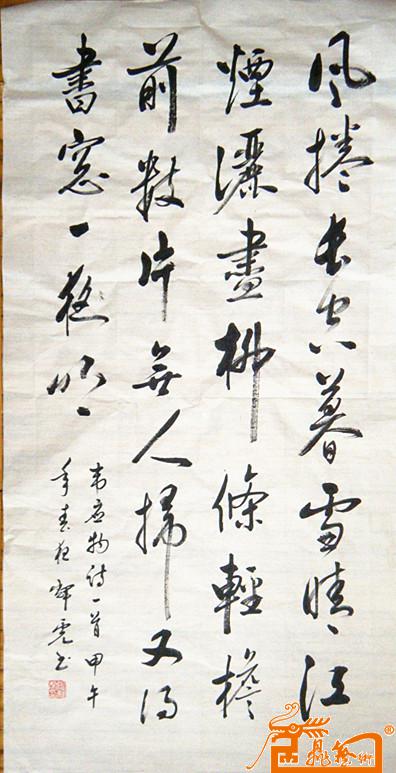 風捲長空暮雪晴江
煙灑盡柳條輕檐
前數片無人掃又得
書窓一夜明
韦应物诗一首甲午
年春夜虎书